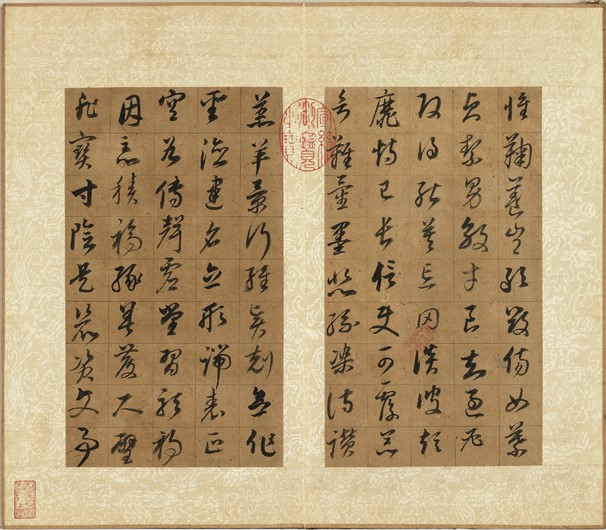 惟鞠養豈敢毀傷女慕
貞絜男效才良知過必
改得能莫忘罔談彼短
靡恃己長信使可覆器
欲難量墨悲絲染詩讚
羔羊景行維賢剋念作
聖德建名立形端表正
空谷傳聲虛堂習聽禍
因惡積福緣善慶尺璧
非寶寸陰是競資父事